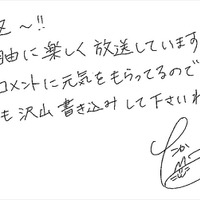 ~!!
由に楽しく放送しています
コメントに元気をもらってるので
も沢山書き込みして下さいね